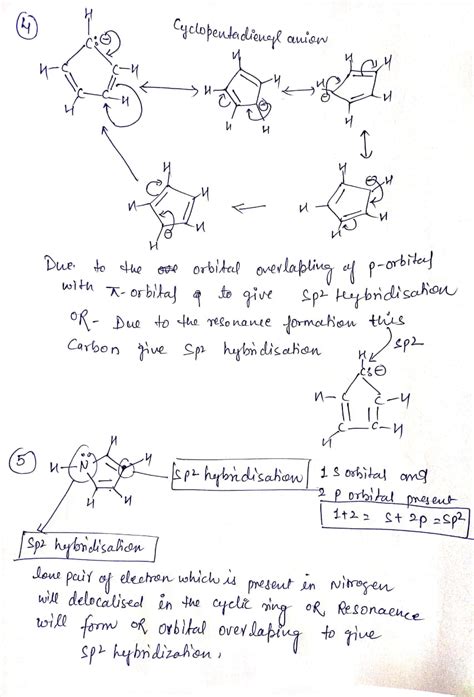 4
Cyclopentadienyl anion
H
C:⊖
H-C C-H
C C
H H
H H ⊖ H
H H H
H ⊖ H
H H H
Due to the orbital overlabling of p-orbital
with π-orbital to give Sp2 Hybridisation
OR- Due to the resonance formation this
Carbon give Sp2 hybridisation
sp2
H
C:⊖
H-C C-H
C C
H H
5
H-N H
H
H H
Sp2 hybridisation
1 S orbital and
2 p orbital present
1+2= S+2p=Sp2
Sp2 hybridisation
lone pair of electron which is present in Nitrogen
will delocalised in the cyclic ring OR Resonaence
will form OR orbital overlaping to give
Sp2 hybridization.